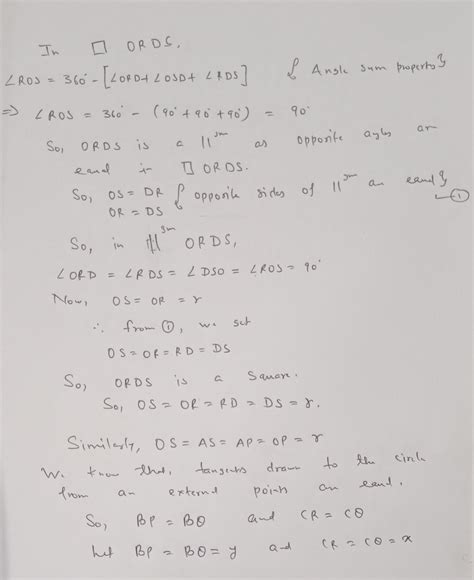 In □ ORDS,
∠ROS = 360° - [∠ORD + ∠OSD + ∠RDS] { Angle sum property}
⇒ ∠ROS = 360° - (90° + 90° + 90°) = 90°
So, ORDS is a ||gm as opposite angles are
equal in □ ORDS.
So, OS = DR { opposite sides of ||gm are equal}
OR = DS —①
So, in ||gm ORDS,
∠ORD = ∠RDS = ∠DSO = ∠ROS = 90°
Now, OS = OR = r
∴ from ①, we get
OS = OR = RD = DS
So, ORDS is a Square.
So, OS = OR = RD = DS = r.
Similarly, OS = AS = AP = OP = r
We know that, tangents drawn to the circle
from an external point are equal.
So, BP = BQ and CR = CQ
Let BP = BQ = y and CR = CQ = x